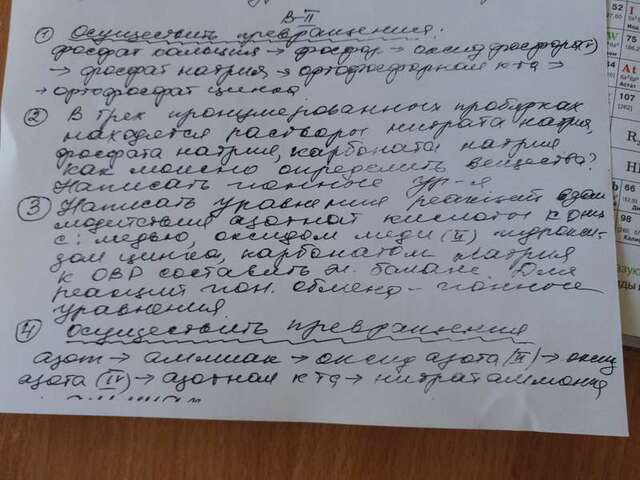 В-II
① Осуществить превращения:
фосфат кальция → фосфор → оксид фосфора(V)
→ фосфат натрия → ортофосфорная к-та →
→ ортофосфат цинка
② В трех пронумерованных пробирках
находятся растворы нитрата натрия,
фосфата натрия, карбоната натрия
как можно определить вещества?
Написать ионные ур-я
③ Написать уравнения реакций взаи
модействия азотной кислоты
с: медью, оксидом меди (II) гидрокси
дом цинка, карбонатом натрия
к ОВР составить эл. баланс. Для
реакций ион. обмена - ионные
уравнения
④ Осуществить превращения
азот → аммиак → оксид азота (II) → оксид
азота (IV) → азотная к-та → нитрат аммония
52
75
At
Астат
107
66
98